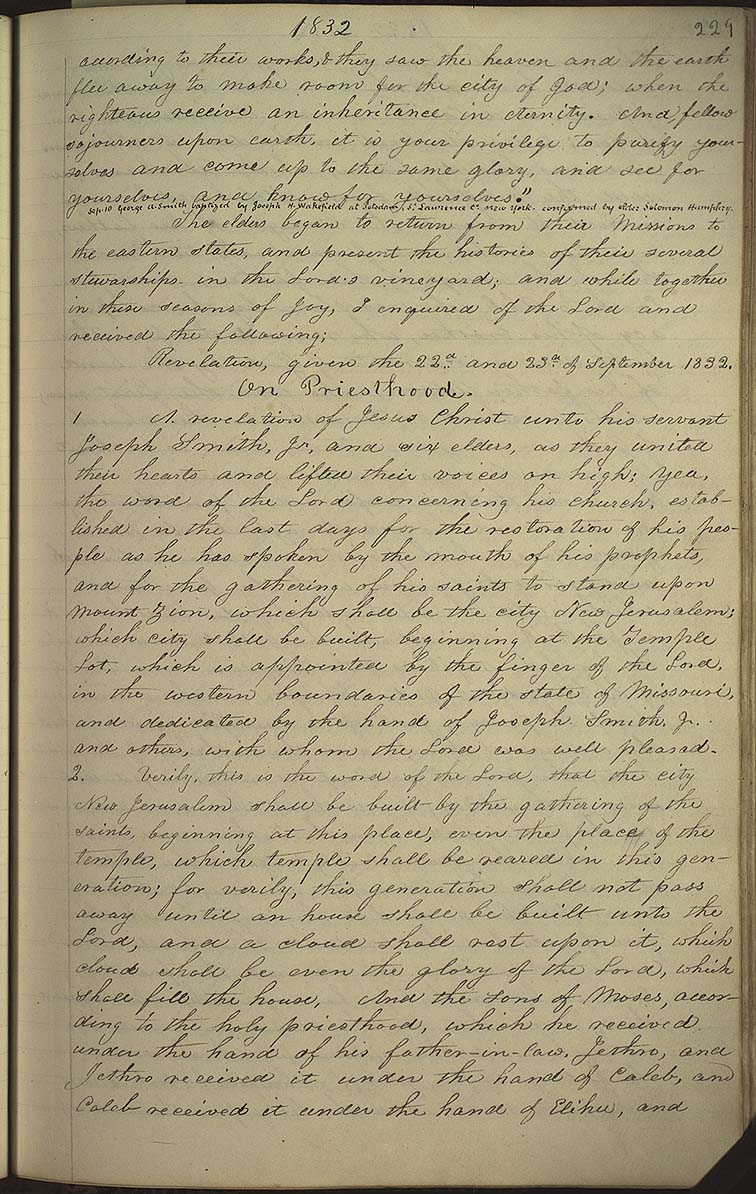 1832
229
according to their works, & they saw the heaven and the earth
flee away to make room for the city of God; when the
righteous receive an inheritance in eternity. And fellow
sojourners upon earth, it is your privilege to purify your-
selves and come up to the same glory, and see for
yourselves, and know for yourselves."
Sep. 10 George A. Smith baptized by Joseph H. Wakefield at Potsdam, St. Lawrence Co. New York. confirmed by elder Solomon Humphry.
The elders began to return from their Missions to
the eastern states, and present the histories of their several
stewarships in the Lord's vineyard; and while together
in these seasons of Joy, I enquired of the Lord and
received the following;
Revelation, given the 22d. and 23d. of September 1832.
On Priesthood.
1 A revelation of Jesus Christ unto his servant
Joseph Smith, Jr, and six elders, as they united
their hearts and lifted their voices on high; yea,
the word of the Lord concerning his church, estab-
lished in the last days for the restoration of his peo-
ple as he has spoken by the mouth of his prophets,
and for the gathering of his saints to stand upon
Mount Zion, which shall be the city New Jerusalem;
which city shall be built, beginning at the Temple
Lot, which is appointed by the finger of the Lord,
in the western boundaries of the state of Missouri,
and dedicated by the hand of Joseph Smith, Jr.
and others, with whom the Lord was well pleased.
2. Verily, this is the word of the Lord, that the city
New Jerusalem shall be built by the gathering of the
saints, beginning at this place, even the place of the
temple, which temple shall be reared in this gen-
eration; for verily, this generation shall not pass
away until an house shall be built unto the
Lord, and a cloud shall rest upon it, which
cloud shall be even the glory of the Lord, which
shall fill the house, And the sons of Moses, accor-
ding to the holy priesthood, which he received
under the hand of his father-in-law, Jethro, and
Jethro received it under the hand of Caleb, and
Caleb received it under the hand of Elihu, and